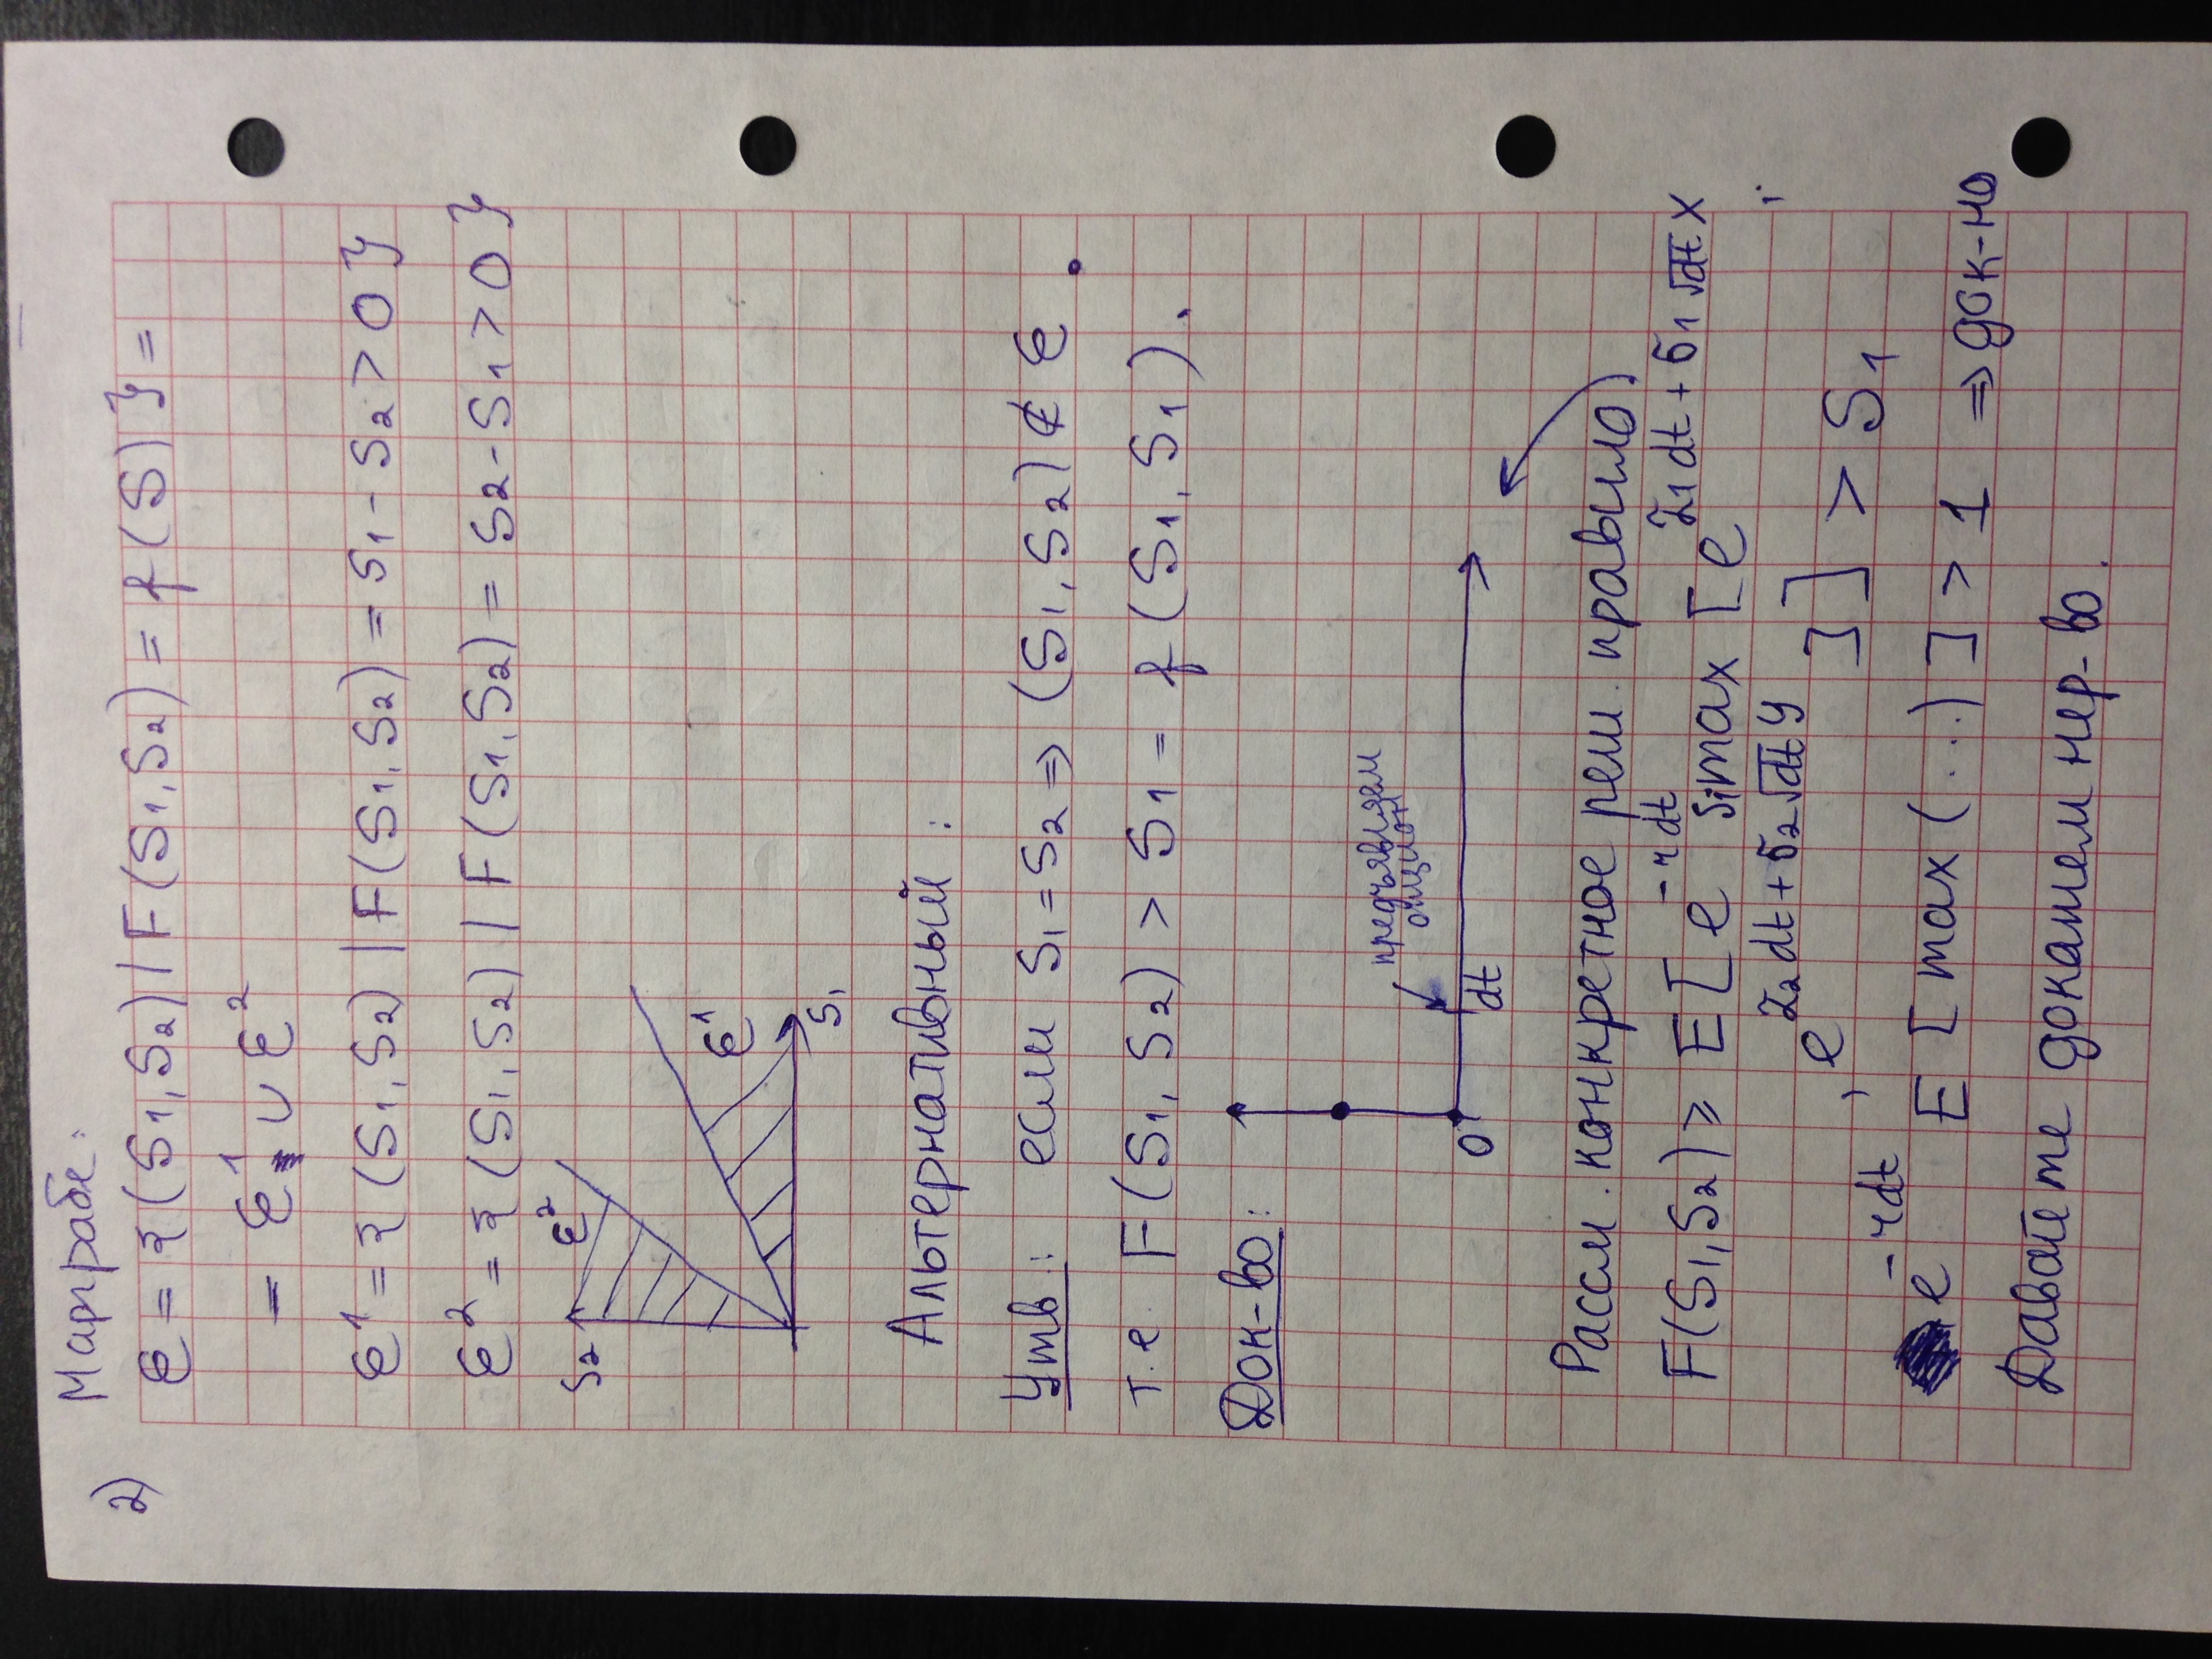 2) Марграбе:
ℰ = {(S₁, S₂) | F(S₁, S₂) = f(S)} =
= ℰ¹ ∪ ℰ²
ℰ¹ = {(S₁, S₂) | F(S₁, S₂) = S₁ - S₂ > 0}
ℰ² = {(S₁, S₂) | F(S₁, S₂) = S₂ - S₁ > 0}
S₂
ℰ²
ℰ¹
S₁
Альтернативный:
Утв: если S₁ = S₂ ⇒ (S₁, S₂) ∉ ℰ.
т.е. F(S₁, S₂) > S₁ = f(S₁, S₁).
Док-во:
предъявляем
опцион
0
dt
Рассм. конкретное реш. правило)
F(S₁, S₂) ≥ E[e^{-rdt} S₁max[e^{r̃₁dt + σ₁√dt x};
, e^{r̃₂dt + σ₂√dt y}]] > S₁
e^{-rdt} E[max(...)] > 1 ⇒ док-но
Давайте докажем нер-во.